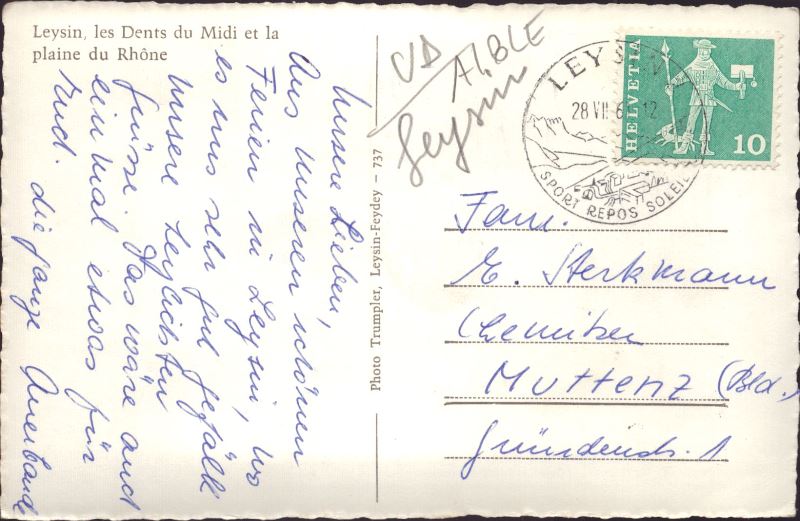 Leysin, les Dents du Midi et la
plaine du Rhône
VD
AIBLE
Leysin
HELVETIA
10
LEYSIN
28 VII 6 12
SPORT REPOS SOLEIL
Photo Trumpler, Leysin-Feydey – 737
Unsere Lieben,
Aus unseren schönen
Ferien in Leysin, wo
es uns sehr gut gefällt
unsere herzlichsten
Grüsse. Das wäre auch
einmal etwas für
Euch. die ganze
Fam.
E. Sterkmann
Chemiker
Muttenz (Bld.)
Gründenstr. 1